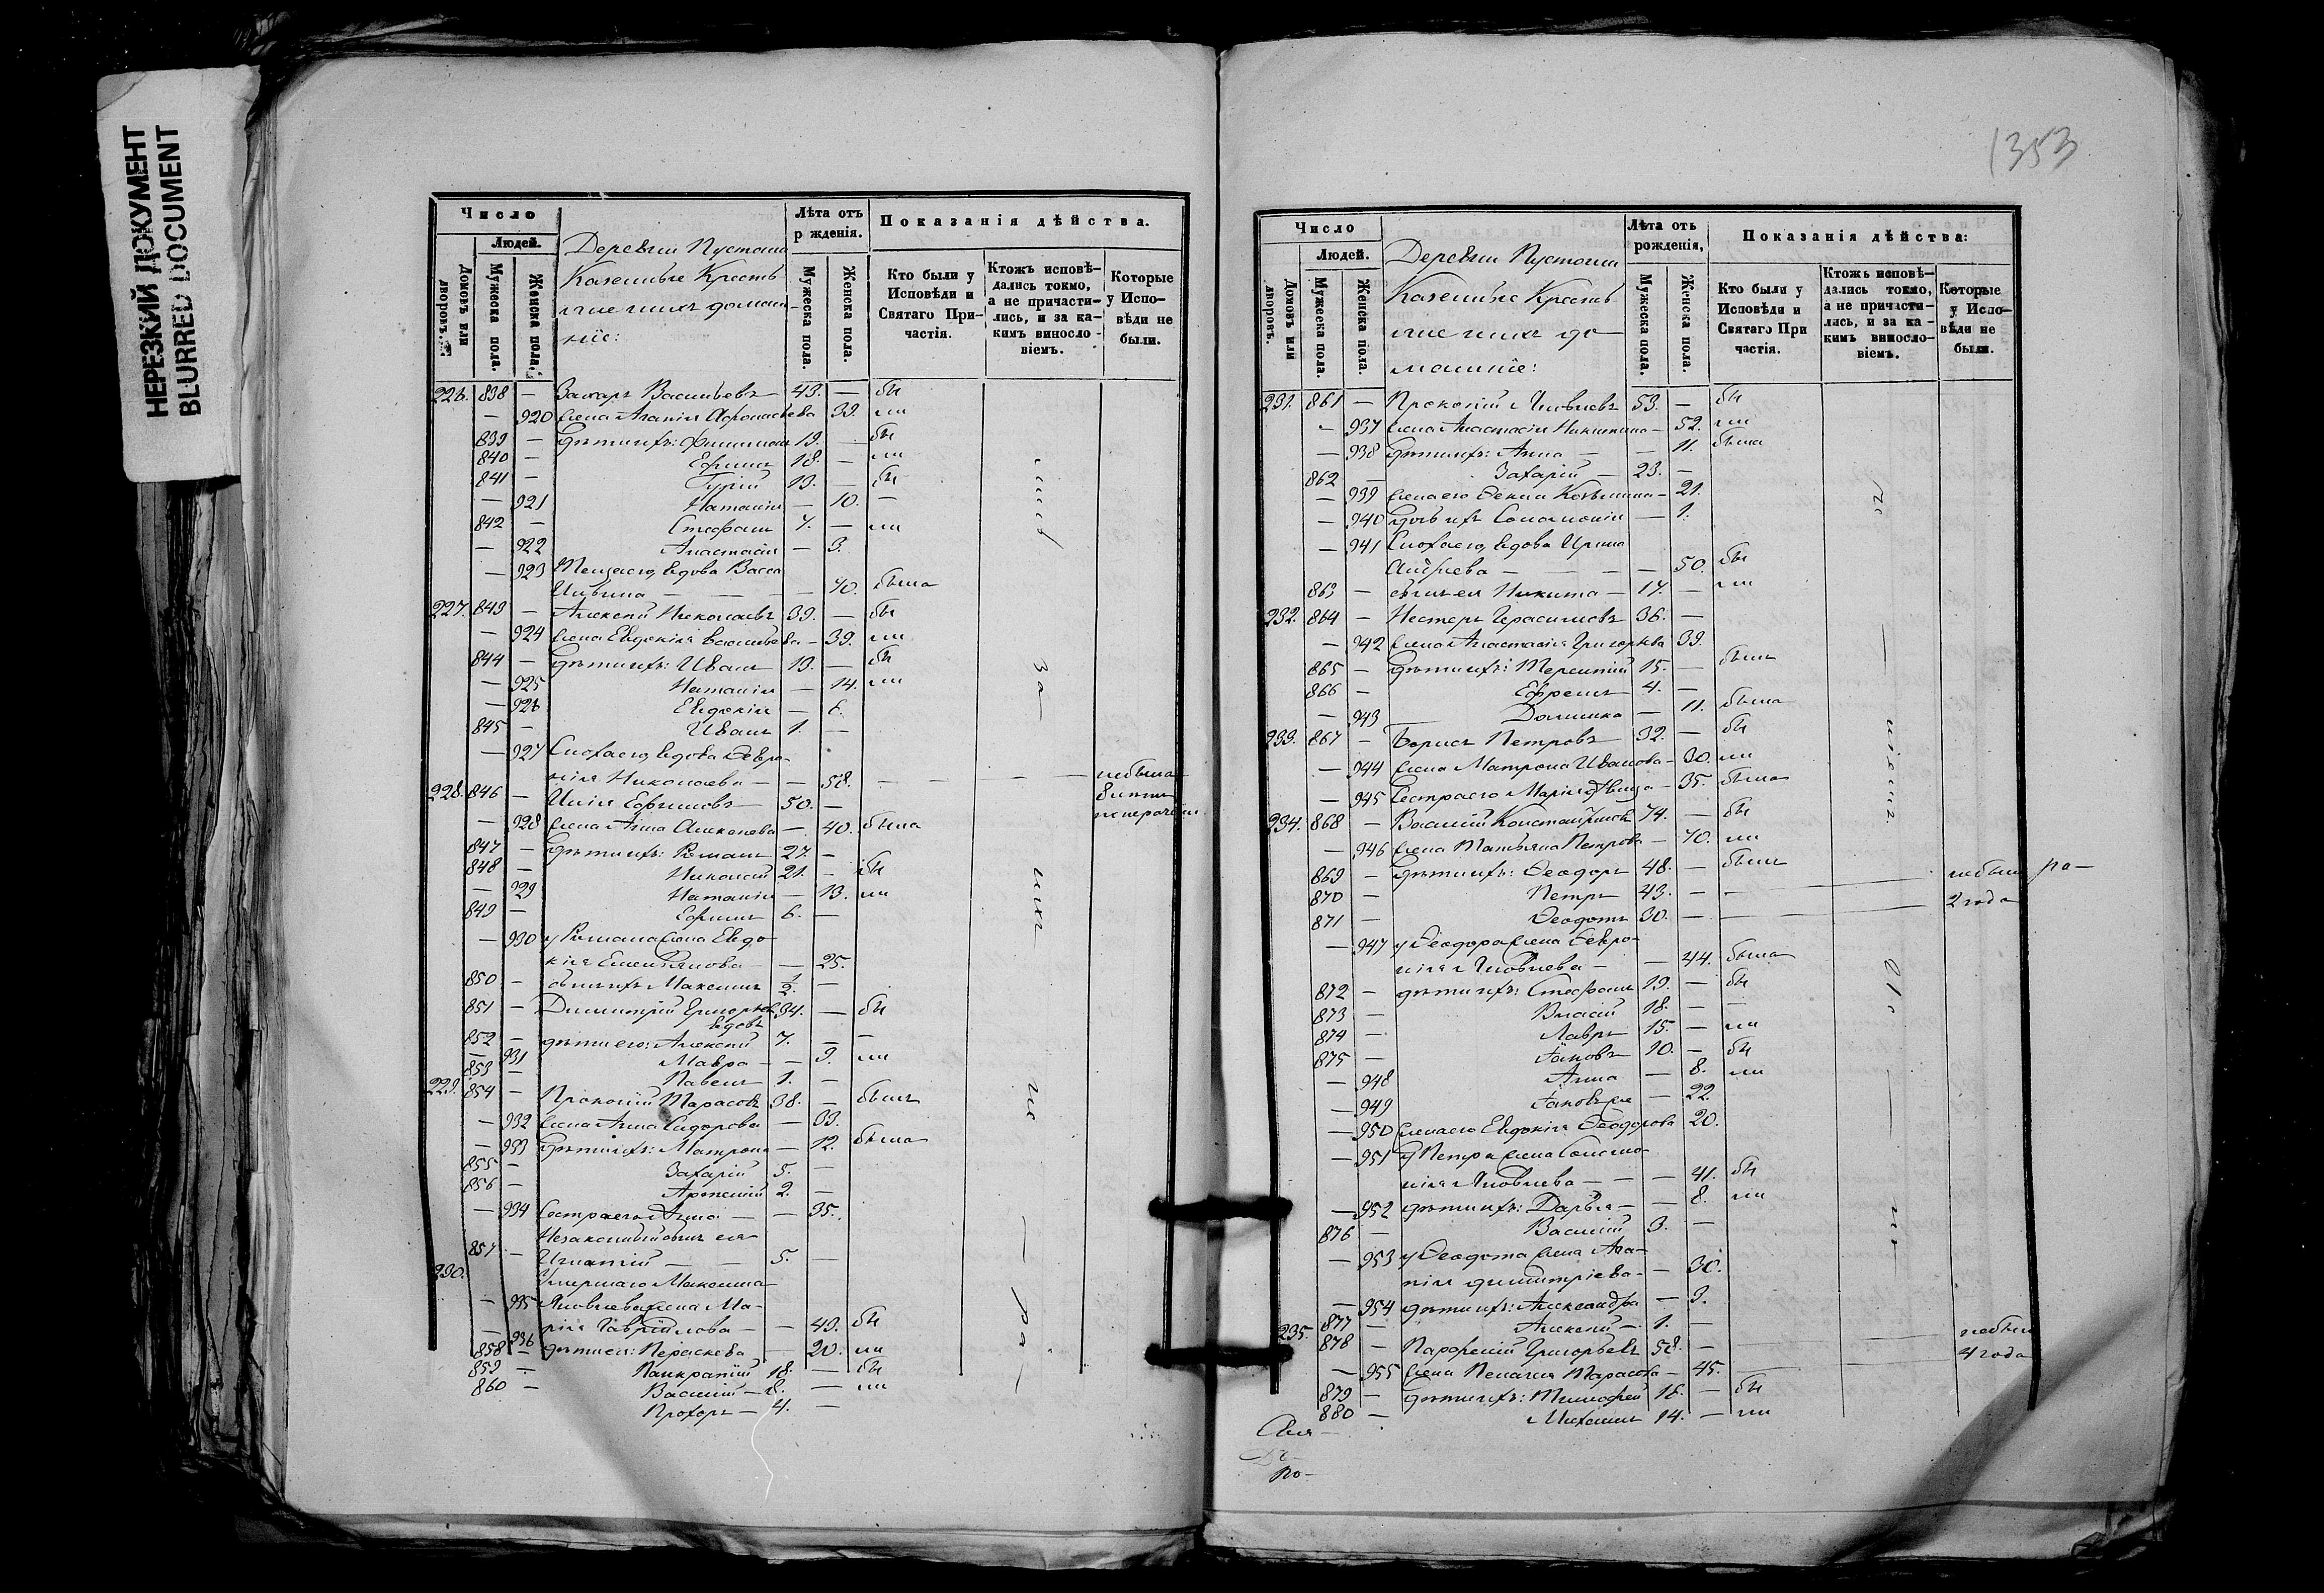 НЕРЕЗКИЙ ДОКУМЕНТ
BLURRED DOCUMENT
Число
Людей.
Домовъ или дворовъ.
Мужеска пола.
Женска пола.
Деревни Пустоши
Казенные Кресть
яне и ихъ домаш-
ніе:
Лѣта отъ
р жденія.
Мужеска пола.
Женска пола.
Показанія дѣйства.
Кто были у
Исповѣди и
Святаго При-
частія.
Ктожъ исповѣ-
дались токмо,
а не причасти-
лись, и за ка-
кимъ винosло-
віемъ.
Которые
у Испо-
вѣди не
были.
226. 838 — Захаръ Васильевъ 43. — бы
— 920 Жена Агапія Афонасьева 39. ли
839 — Дѣти ихъ: Филимонъ 19. — бы
840 — Ефимъ 18. — ли
841 — Гурій 13. — бы
— 921 Наталія — 10. —
842 — Стефанъ 7. — ли
— 922 Анастасія — 3.
— 923 Теща его, вдова Васса
70. была
227. 843 — Алексѣй Николаевъ 39. — бы
— 924 Жена Евдокія Васильева — 39. ли
844 — Дѣти ихъ: Иванъ 19. — бы
— 925 Наталія — 14. ли
— 926 Евдокія — 6.
845 — Иванъ 1. —
— 927 Сноха его, вдова Февро-
нія Николаева — — 58. — — — небыла
228. 846 — Илія Ефимовъ 50. —
— 928 Жена Анна Алексѣева — 40. была
847 — Дѣти ихъ: Романъ 27. —
848 — Николай 21. — бы
— 929 Наталія — 13. ли
849 — Ефимъ 6. —
— 930 у Романа жена Евдо-
кія Емельянова — 25.
850 — сынъ ихъ Максимъ 1/2. —
851 — Димитрій Григорьевъ 34. — бы
вдовъ
852 — дѣти его: Алексѣй 7. — —
— 931 Мавра — 9. ли
853 — Павелъ 1. —
229. 854 — Прокопій Тарасовъ 38. — былъ
— 932 Жена Анна Сидорова — 33.
— 933 Дѣти ихъ: Матрона — 12. была
855 — Захарій 5. —
856 — Арсеній 2. —
— 934 Сестра его Анна — — 35.
Незаконный сынъ ея
857 — Игнатій — — 5. —
230. Умершаго Максима
— 935 Яковлева жена Ма-
рія Гавріилова — — 49. бы
— 936 дѣти ея: Параскева — 20. ли
858 — Панкратій 18. — бы
859 — Василій — 8. — ли
860 — Прохоръ — 4. —
за
ихъ
не
—ра—
1353
Число
Людей.
Домовъ или дворовъ.
Мужеска пола.
Женска пола.
Деревни Пустоши
Казенные Кресть
яне и ихъ до-
машніе:
Лѣта отъ
рожденія,
Мужеска пола.
Женска пола.
Показанія дѣйства:
Кто были у
Исповѣди и
Святаго При
частія.
Ктожъ исповѣ-
дались токмо,
а не причасти-
лись, и за ка-
кимъ виносло-
віемъ.
Которые
у Испо-
вѣди не
были.
231. 861 — Прокопій Яковлевъ 53. — бы
— 937 Жена Анастасія Никитина — 52. ли
— 938 Дѣти ихъ: Анна — — 11. была
862 — Захарій — 23. —
— 939 Жена его Фекла Козьмина — 21.
— 940 Дочь ихъ Соломонія — 1.
— 941 Сноха его, вдова Ирина
Андреева — — — 50. бы
863 — сынъ ея Никита — 17. — ли
232. 864 — Нестеръ Герасимовъ 36. —
— 942 Жена Анастасія Григорьева 39.
865 — Дѣти ихъ: Терентій 15. — былъ
866 — Ефремъ 4. —
— 943 Домника — 11. была
233. 867 — Борисъ Петровъ 32. — бы
— 944 Жена Матрона Иванова — 30. ли
— 945 Сестра его Марія дѣвица — 35. была
234. 868 — Василій Константиновъ 74. — бы
— 946 Жена Татьяна Петрова — 70. ли
869 — Дѣти ихъ: Феодоръ 48. — былъ
870 — Петръ 43. — — небыли ра-
871 — Феодотъ 30. — — 2 года
— 947 у Феодора жена Февро-
нія Яковлева — — 44. была
872 — дѣти ихъ: Стефанъ 19. — бы
873 — Власій 18. — —
874 — Лавръ 15. — ли
875 — Іаковъ 10. — бы
— 948 Анна — 8. ли
— 949 — 22.
— 950 Жена его Евдокія Феодорова 20.
— 951 у Петра жена Соломо-
нія Яковлева — — — 41. бы
— 952 дѣти ихъ: Дарья — — 8. ли
876 — Василій 3. —
— 953 у Феодота жена Ага-
пія Димитріева — — 30.
— 954 дѣти ихъ: Александра — 9.
877 — Алексѣй — 1. —
235. 878 — Парфеній Григорьевъ 58. — небыли
4 года
— 955 Жена Пелагія Тарасова — 45.
879 — Дѣти ихъ: Тимофей 16. — бы
880 — Михаилъ 14. — ли
по-